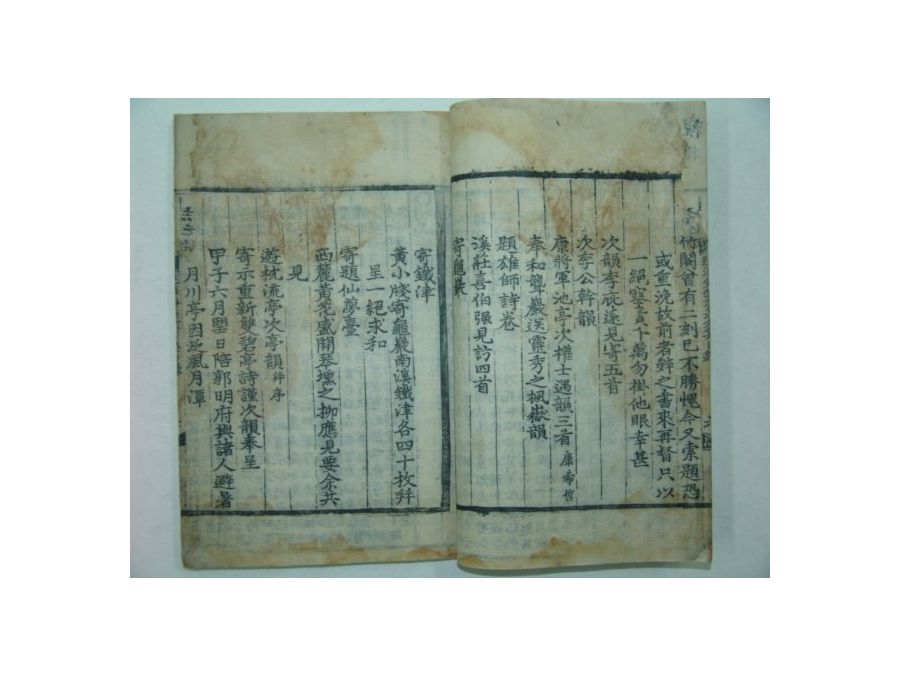 竹閣曾有二刻已不勝愧今又索題恐
或重浼故前者辭之書來再督只以
一絕塞言千萬勿掛他眼幸甚
次韻李庇遠見寄五首
次李公幹韻
康將軍池亭次權士遇韻三首 康希哲
奉和聾巖送靈秀之楓嶽韻
題雄師詩卷
溪莊喜伯强見訪四首
寄龜巖
寄鐵津
黃小牋寄龜巖南溪鐵津各四十枚幷
呈一絕求和
寄題仙夢臺
西麓黃花盛開琴壎之抑應見要余共
見
遊枕流亭次亭韻幷序
寄示重新雙碧亭詩謹次韻奉呈
甲子六月望日陪郭明府與諸人避暑
月川亭因及風月潭